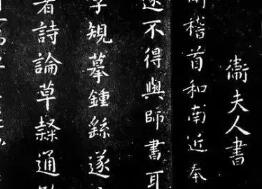 衛夫人書
衛稽首和南近奉
遂不得與師書耳
學規摹鍾繇遂
著詩論草隸通